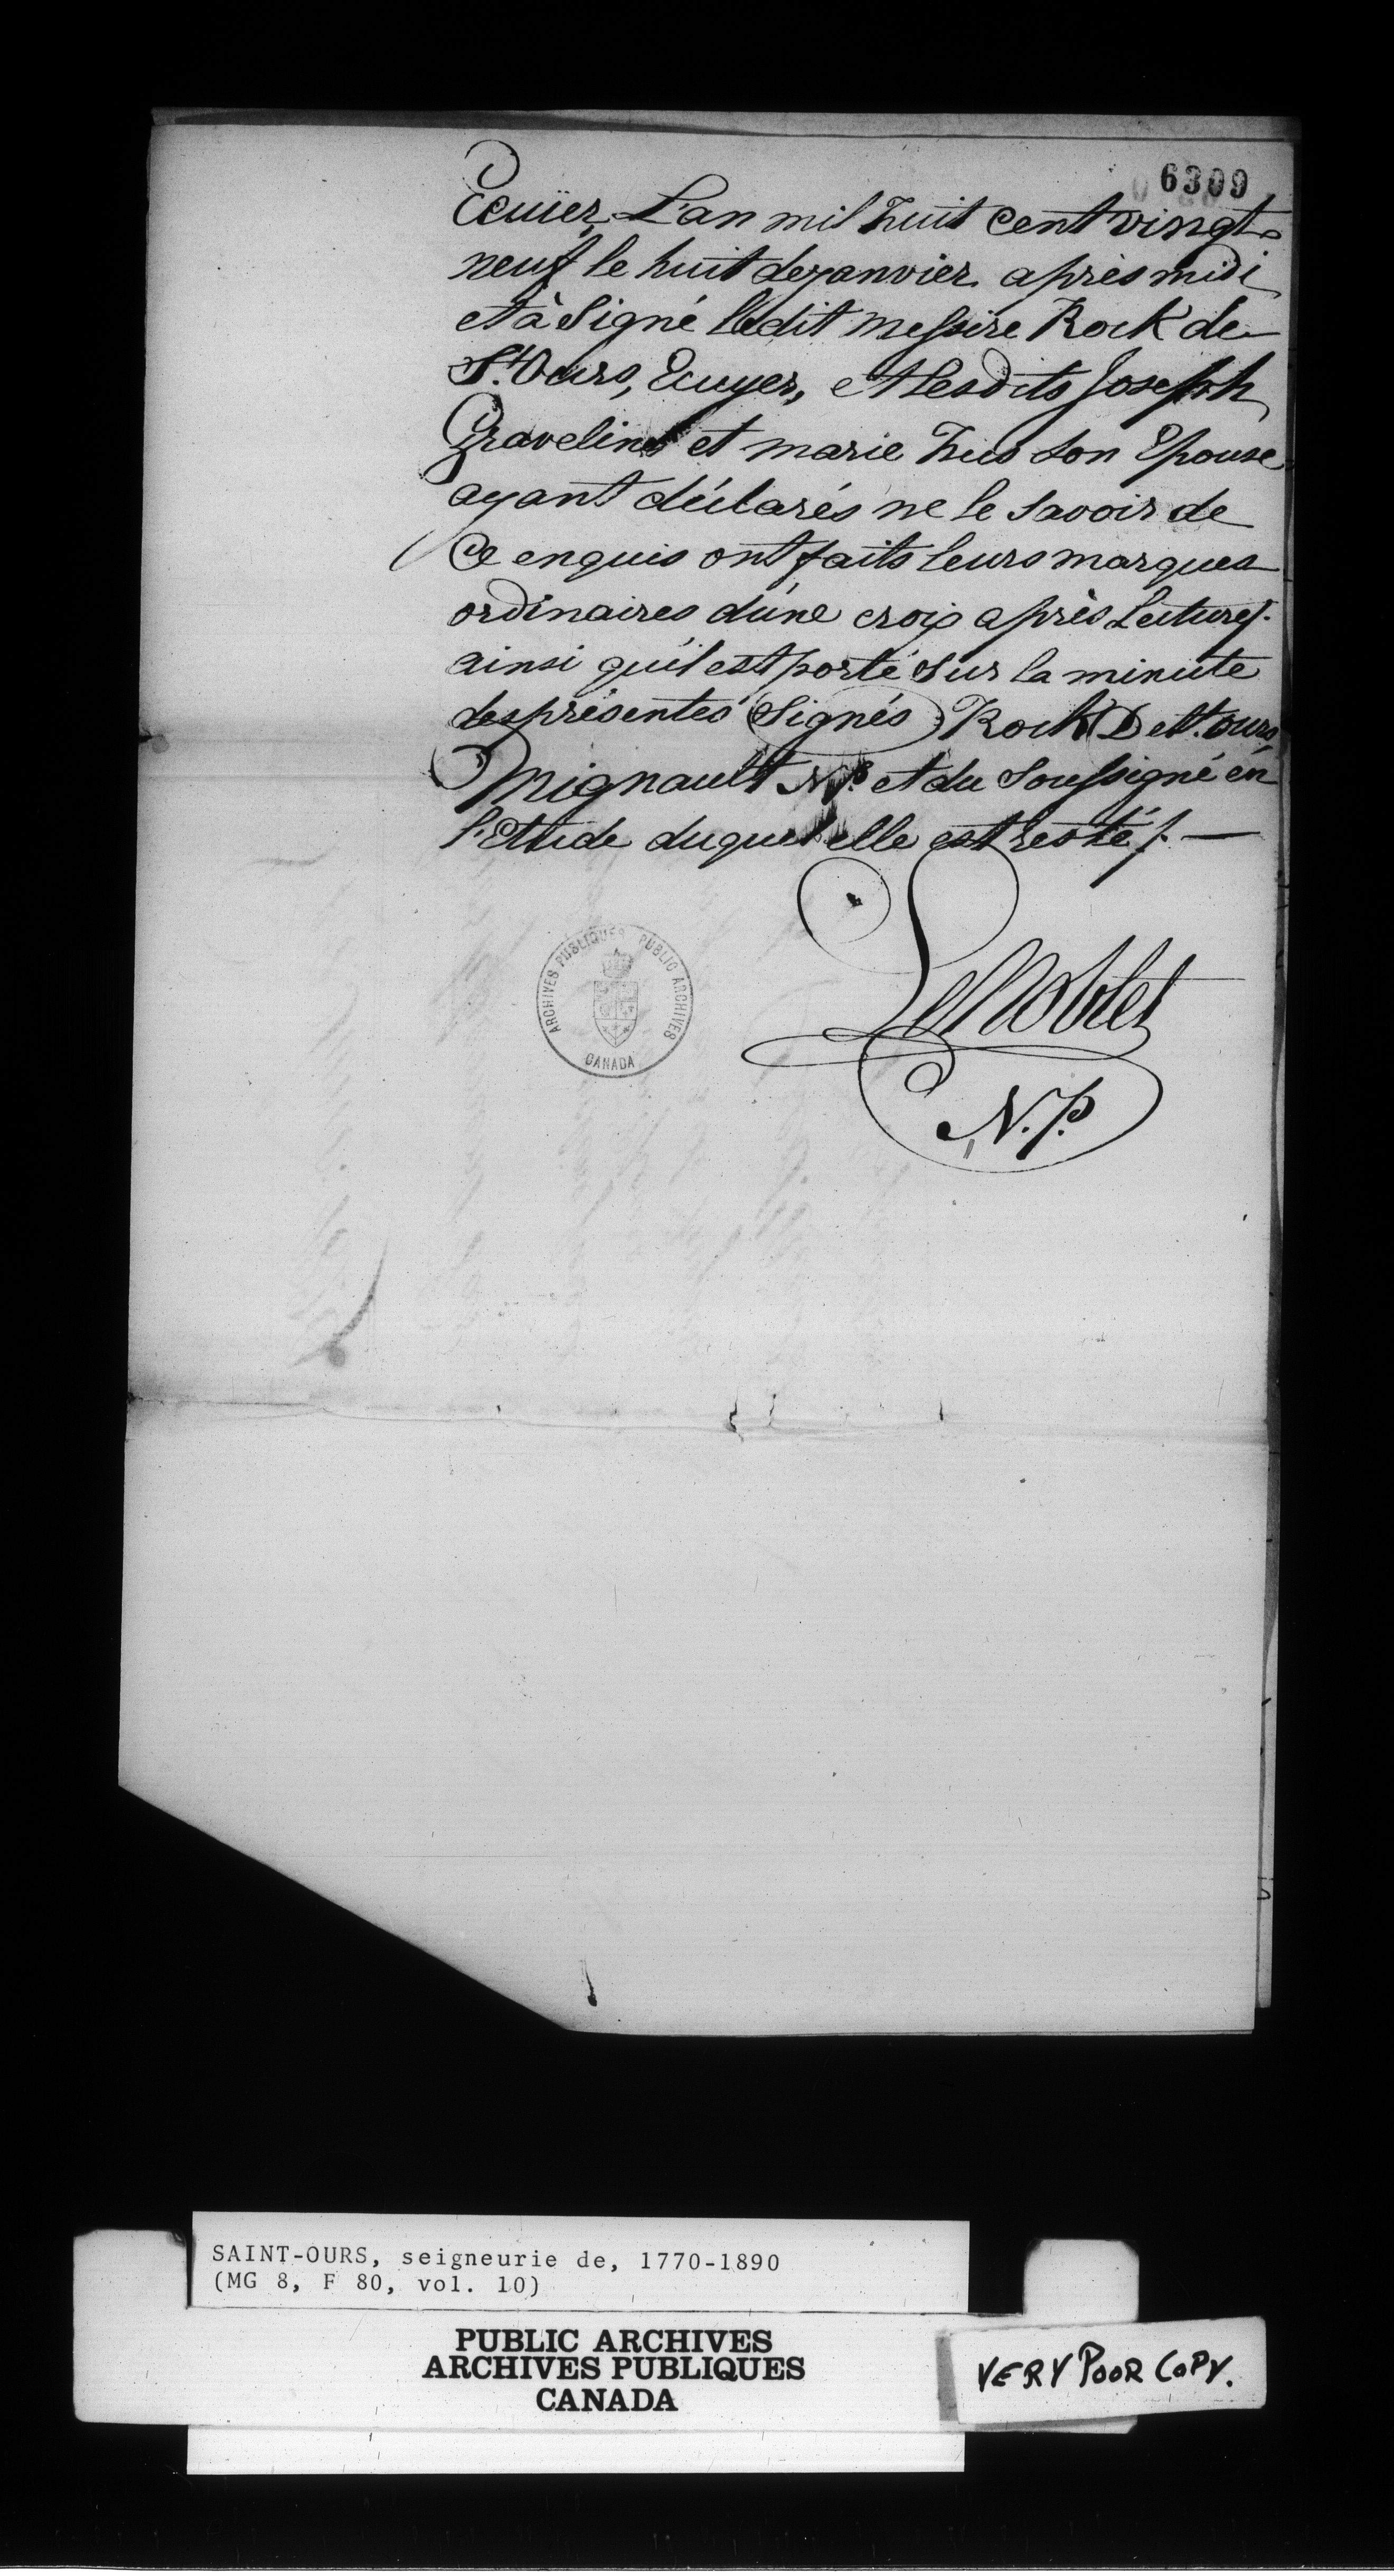 6309
Ecuïer, L'an mil huit cent vingt-
neuf le huit de janvier après midi
et à Signé ledit messire Rock de
St. Ours, Ecuyer, et lesdits Joseph
Graveline et marie hus son Epouse
ayant déclarés ne le savoir de
Ce enquis ont faits leurs marques
ordinaires d'une croix après Lecture/.
ainsi qu'il est porté sur la minute
des présentes (Signés) Rock De St. Ours
Mignault N.P. et du Soussigné en
l'Etude duquel elle est restée /. —
LeNoblet
N.P.
ARCHIVES PUBLIQUES PUBLIC ARCHIVES
CANADA
SAINT-OURS, seigneurie de, 1770-1890
(MG 8, F 80, vol. 10)
PUBLIC ARCHIVES
ARCHIVES PUBLIQUES
CANADA
VERY POOR COPY.